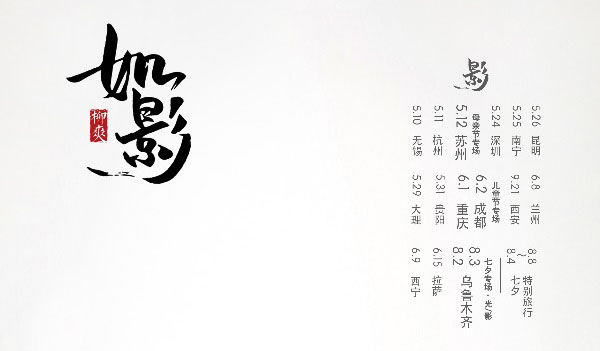 如影
柳爽
影
5.10 无锡
5.11 杭州
5.12 苏州
母亲节专场
5.24 深圳
5.25 南宁
5.26 昆明
5.29 大理
5.31 贵阳
6.1 重庆
6.2 成都
儿童节专场
9.21 西安
6.8 兰州
6.9 西宁
6.15 拉萨
8.2
8.3
乌鲁木齐
七夕专场·光/影
8.4~8.8
七夕
特别旅行